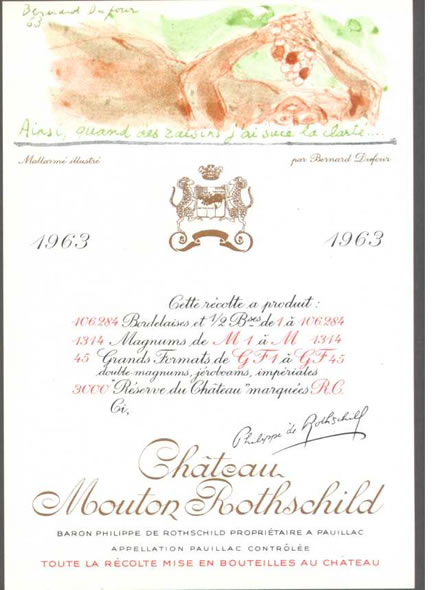 Bernard Dufour
63
Ainsi, quand des raisins j'ai sucé la clarté....
Mallarmé illustré
par Bernard Dufour
1963
1963
Cette récolte a produit :
106284 Bordelaises et 1/2 Bses de 1 à 106284
1314 Magnums de M 1 à M 1314
45 Grands Formats de G F 1 à G F 45
double magnums, jéroboams, impériales
3000 "Réserve du Château" marquées R.C.
Ci,
Philippe de Rothschild
Château
Mouton Rothschild
BARON PHILIPPE DE ROTHSCHILD PROPRIÉTAIRE A PAUILLAC
APPELLATION PAUILLAC CONTRÔLÉE
TOUTE LA RÉCOLTE MISE EN BOUTEILLES AU CHÂTEAU